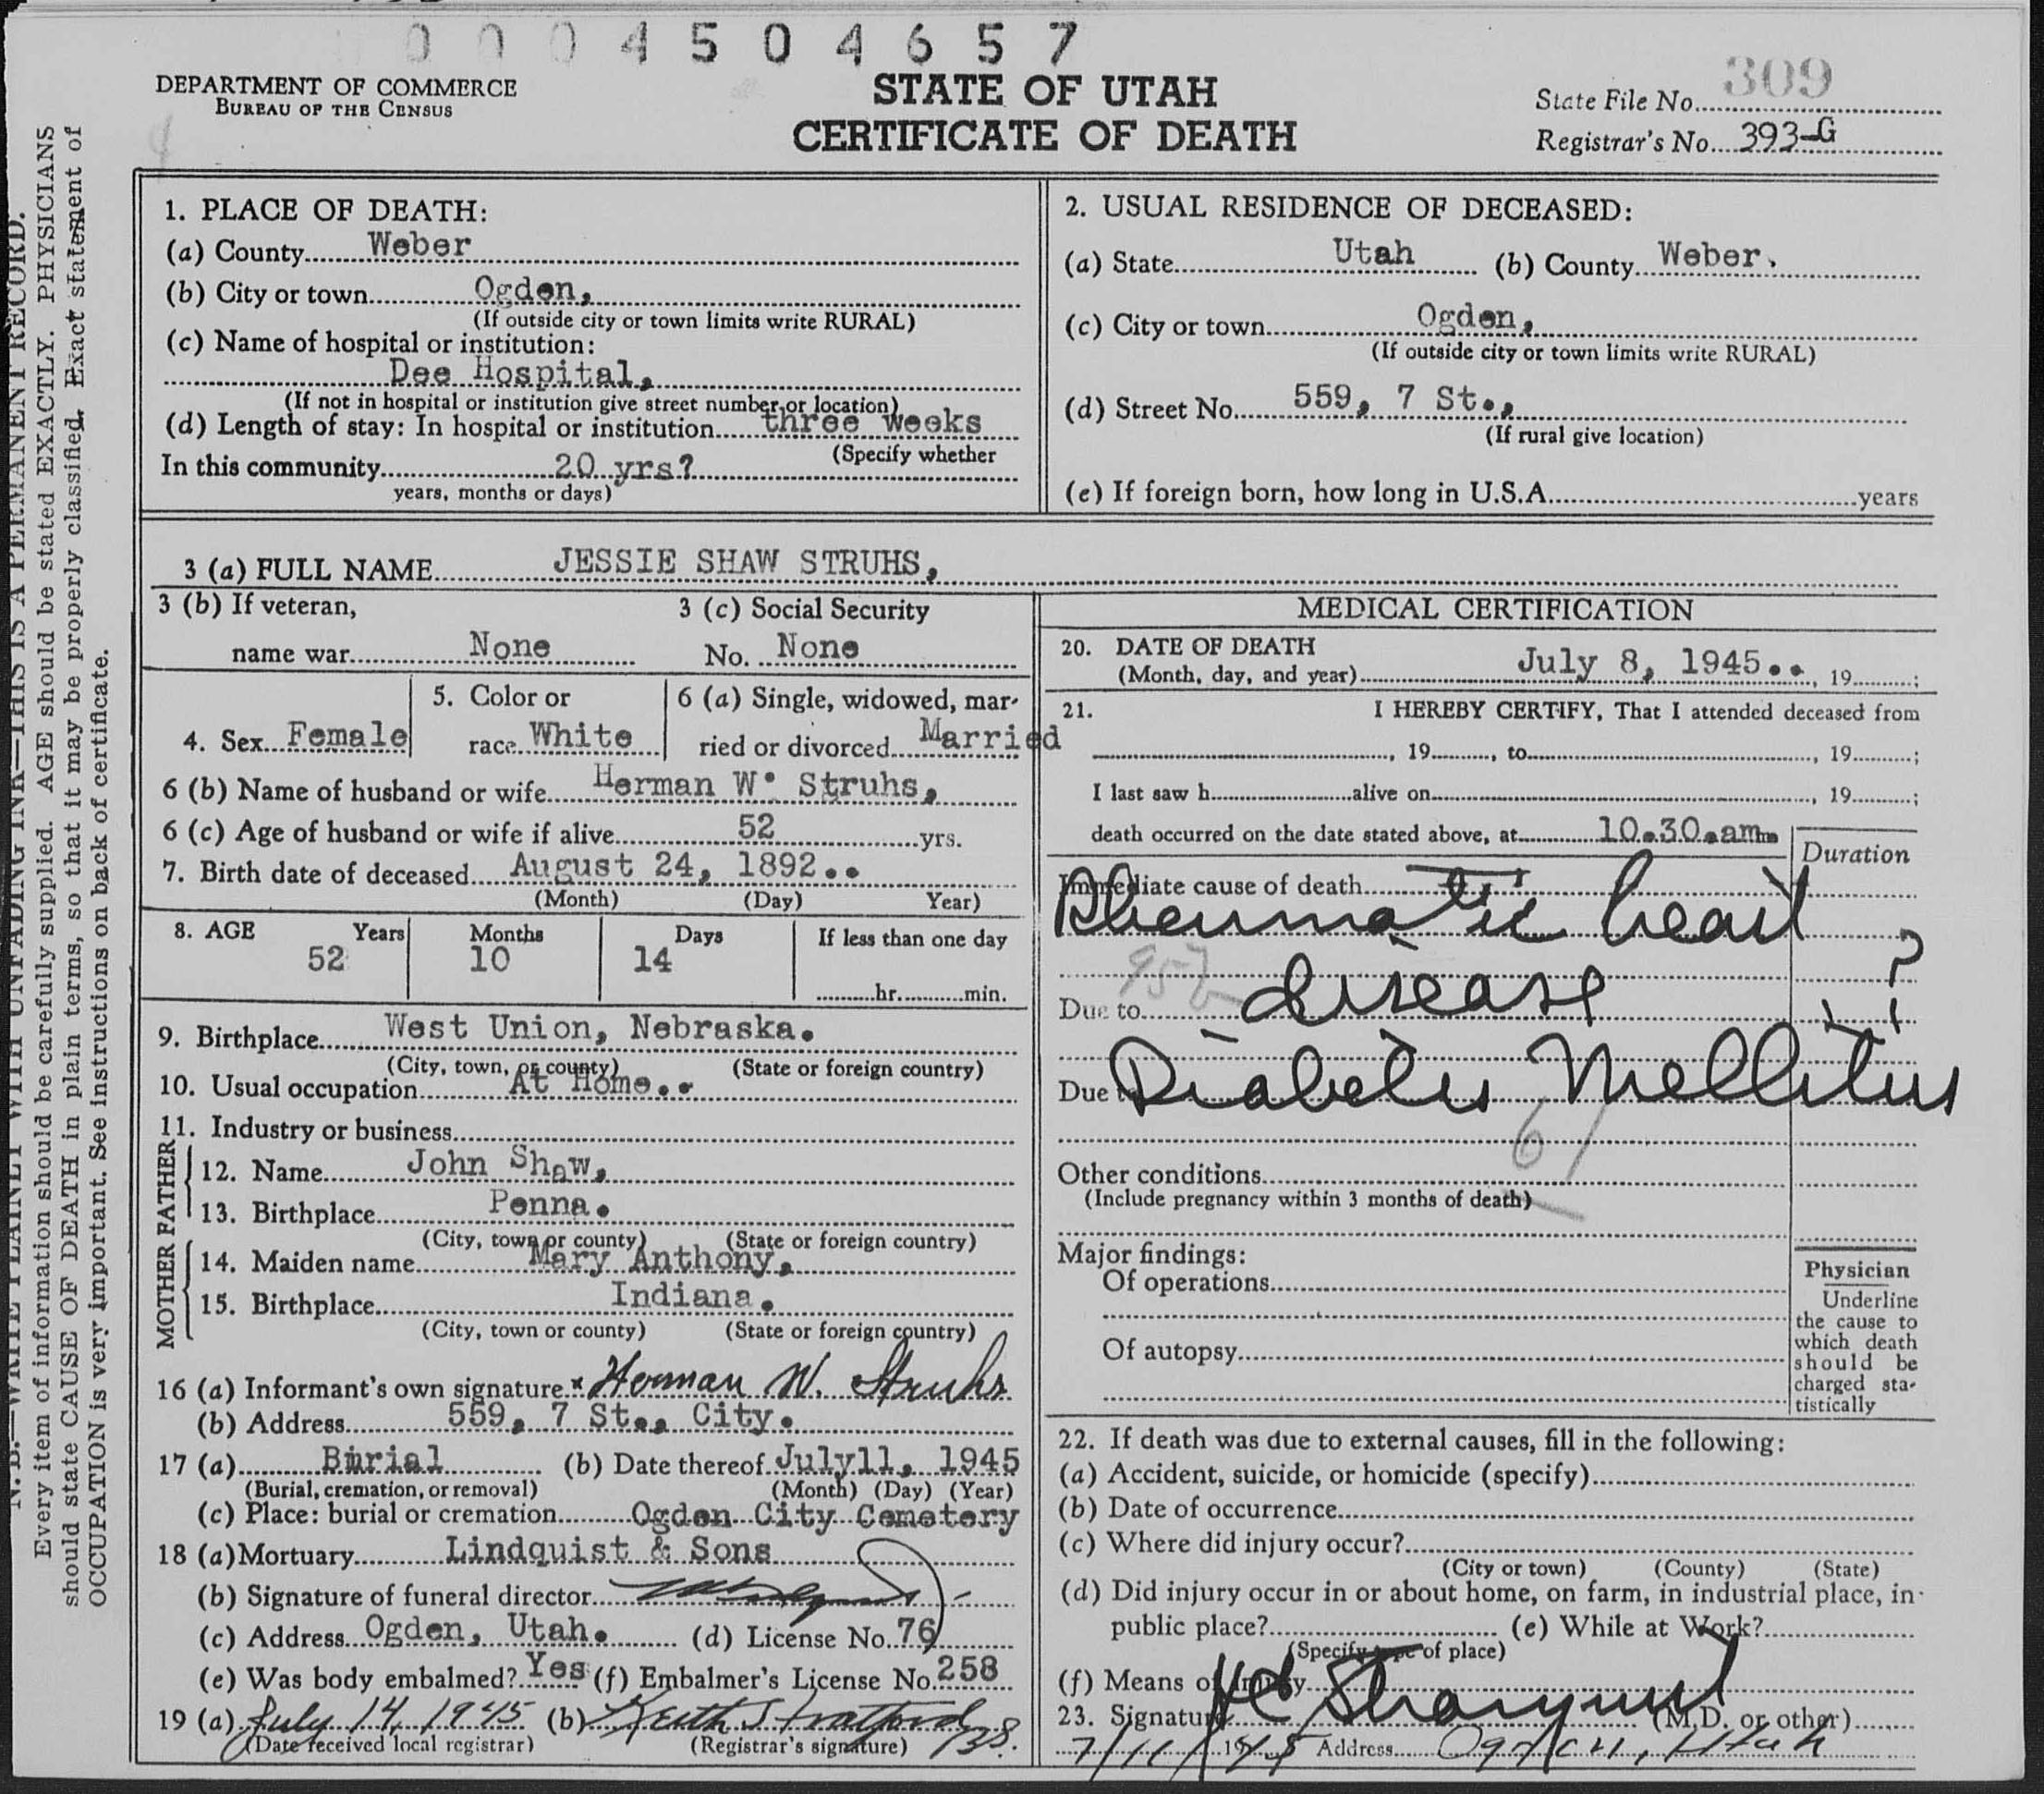 0 0 0 4 5 0 4 6 5 7
DEPARTMENT OF COMMERCE
BUREAU OF THE CENSUS
STATE OF UTAH
CERTIFICATE OF DEATH
State File No. 309
Registrar's No. 393-G
N. B.—WRITE PLAINLY WITH UNFADING INK—THIS IS A PERMANENT RECORD.
Every item of information should be carefully supplied. AGE should be stated EXACTLY. PHYSICIANS
should state CAUSE OF DEATH in plain terms, so that it may be properly classified. Exact statement of
OCCUPATION is very important. See instructions on back of certificate.
1. PLACE OF DEATH:
(a) County Weber
(b) City or town Ogden,
(If outside city or town limits write RURAL)
(c) Name of hospital or institution:
Dee Hospital,
(If not in hospital or institution give street number or location)
(d) Length of stay: In hospital or institution three weeks
(Specify whether
In this community 20 yrs?
years, months or days)
2. USUAL RESIDENCE OF DECEASED:
(a) State Utah (b) County Weber.
(c) City or town Ogden,
(If outside city or town limits write RURAL)
(d) Street No. 559, 7 St.,
(If rural give location)
(e) If foreign born, how long in U.S.A. years
3 (a) FULL NAME JESSIE SHAW STRUHS,
3 (b) If veteran, 3 (c) Social Security
name war None No. None
4. Sex Female 5. Color or race White 6 (a) Single, widowed, mar-
ried or divorced Married
6 (b) Name of husband or wife Herman W. Struhs,
6 (c) Age of husband or wife if alive 52 yrs.
7. Birth date of deceased August 24, 1892..
(Month) (Day) Year)
8. AGE Years Months Days If less than one day
52 10 14 hr. min.
9. Birthplace West Union, Nebraska.
(City, town, or county) (State or foreign country)
10. Usual occupation At Home..
11. Industry or business
FATHER
12. Name John Shaw,
13. Birthplace Penna.
(City, town or county) (State or foreign country)
MOTHER
14. Maiden name Mary Anthony,
15. Birthplace Indiana.
(City, town or county) (State or foreign country)
16 (a) Informant's own signature x Herman W. Struhs
(b) Address 559, 7 St., City.
17 (a) Burial (b) Date thereof July11, 1945
(Burial, cremation, or removal) (Month) (Day) (Year)
(c) Place: burial or cremation Ogden City Cemetery
18 (a) Mortuary Lindquist & Sons
(b) Signature of funeral director
(c) Address Ogden, Utah. (d) License No. 76
(e) Was body embalmed? Yes (f) Embalmer's License No. 258
19 (a) July 14, 1945 (b) Keith Stratford
(Date received local registrar) (Registrar's signature)
MEDICAL CERTIFICATION
20. DATE OF DEATH
(Month, day, and year) July 8, 1945.. , 19 ;
21. I HEREBY CERTIFY, That I attended deceased from
, 19 , to , 19 ;
I last saw h alive on , 19 ;
death occurred on the date stated above, at 10.30.am
Duration
Immediate cause of death
Rheumatic heart
?
95
Due to disease
Due to Diabetes Mellitus
61
Other conditions
(Include pregnancy within 3 months of death)
Major findings:
Of operations
Of autopsy
Physician
Underline
the cause to
which death
should be
charged sta-
tistically
22. If death was due to external causes, fill in the following:
(a) Accident, suicide, or homicide (specify)
(b) Date of occurrence
(c) Where did injury occur?
(City or town) (County) (State)
(d) Did injury occur in or about home, on farm, in industrial place, in
public place? (e) While at Work?
(Specify type of place)
(f) Means of injury
23. Signature (M.D. or other)
7/11/1945 Address Ogden, Utah